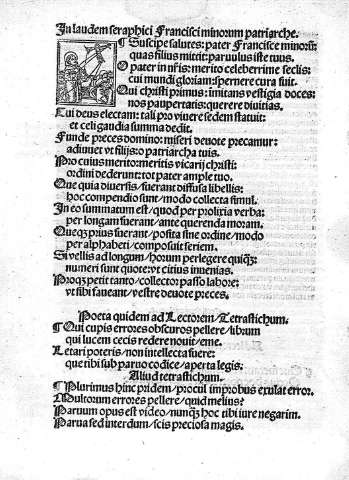 In laudem seraphici Francisci minorum patriarche.
¶ Suscipe salutes: pater Francisce minorũ:
quas filius mittit: paruulus iste tuus.
O pater in nr̃is: merito celeberrime seclis:
cui mundi gloriam: spernere cura fuit.
Qui christi primus: imitans vestigia doces:
nos paupertatis: querere diuitias.
Cui deus electam: tali pro viuere sedem statuit:
et celi gaudia summa dedit.
Funde preces domino: miseri deuote precamur:
adiuuet vt filijs: o patriarcha tuis.
Pro cuius merito: meritis vicarij christi:
ordini dederunt: tot pater ample tuo.
Que quia diuersis/ fuerant diffusa libellis:
hoc compendio sunt/ modo collecta simul.
In eo summatum est/ quod per prolixa verba:
per longam fuerant/ ante querenda moram.
Queqꝫ prius fuerant/ posita sine ordine/ modo
per alphabeti/ composuit seriem.
Si vellis ad longum/ horum perlegere quiqꝫ:
numeri sunt quote: vt citius inuenias.
Proqꝫ petit tanto/ collector passo labore:
vt sibi faueant/ vestre deuote preces.
Poeta quidem ad Lectorem/ Tetrastichum.
¶ Qui cupis errores obscuros pellere/ librum
qui lucem cecis redere nouit/ eme.
Letari poteris/ non intellecta fuere:
que tibi sub paruo codice/ aperta legis.
Aliud tetrastichum.
¶ Plurimus hinc pridem/ procul improbus exulat error.
Multorum errores pellere/ quid melius?
Paruum opus est video/ nunqꝫ hoc tibi iure negarim.
Parua sed interdum/ scis preciosa magis.